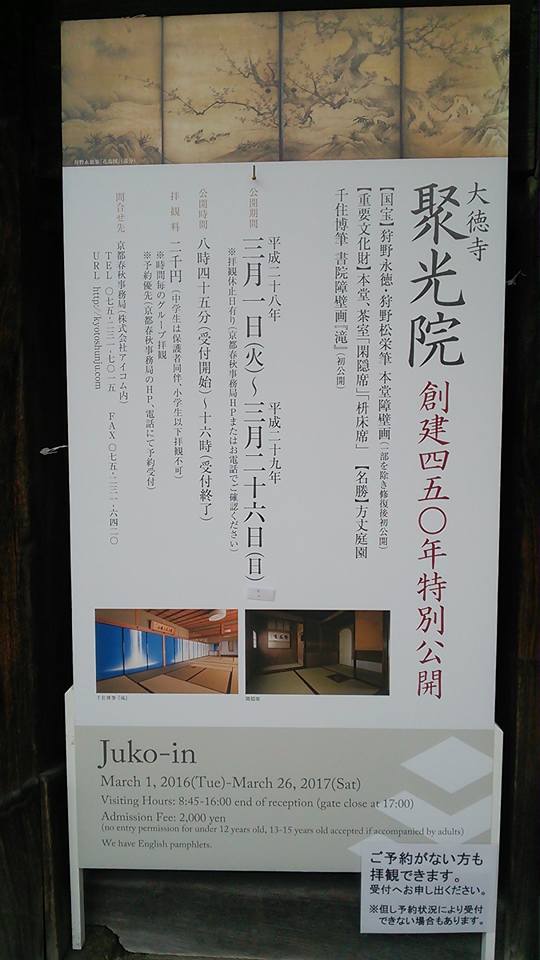 狩野永徳筆「花鳥図」(部分)
大徳寺
聚光院
創建四五〇年特別公開
【国宝】狩野永徳・狩野松栄筆 本堂障壁画(一部を除き修復後初公開)
【重要文化財】本堂、茶室「閑隠席」「枡床席」 【名勝】方丈庭園
千住博筆 書院障壁画『滝』(初公開)
公開期間
平成二十八年 平成二十九年
三月一日(火)〜三月二十六日(日)
※拝観休止日有り(京都春秋事務局HPまたはお電話でご確認ください)
公開時間 八時四十五分(受付開始)〜十六時(受付終了)
拝観料 二千円(中学生は保護者同伴、小学生以下拝観不可)
※時間毎のグループ拝観
※予約優先(京都春秋事務局のHP、電話にて予約受付)
問合せ先 京都春秋事務局(株式会社アイコム内)
TEL 〇七五-二三一-七〇一五 FAX 〇七五-二三一-六四二〇
URL http://kyotoshunju.com
千住博筆『滝』
閑隠席
Juko-in
March 1, 2016(Tue)-March 26, 2017(Sat)
Visiting Hours: 8:45-16:00 end of reception (gate close at 17:00)
Admission Fee: 2,000 yen
(no entry permission for under 12 years old, 13-15 years old accepted if accompanied by adults)
We have English pamphlets.
ご予約がない方も
拝観できます。
受付へお申し出ください。
※但し予約状況により受付
できない場合もあります。